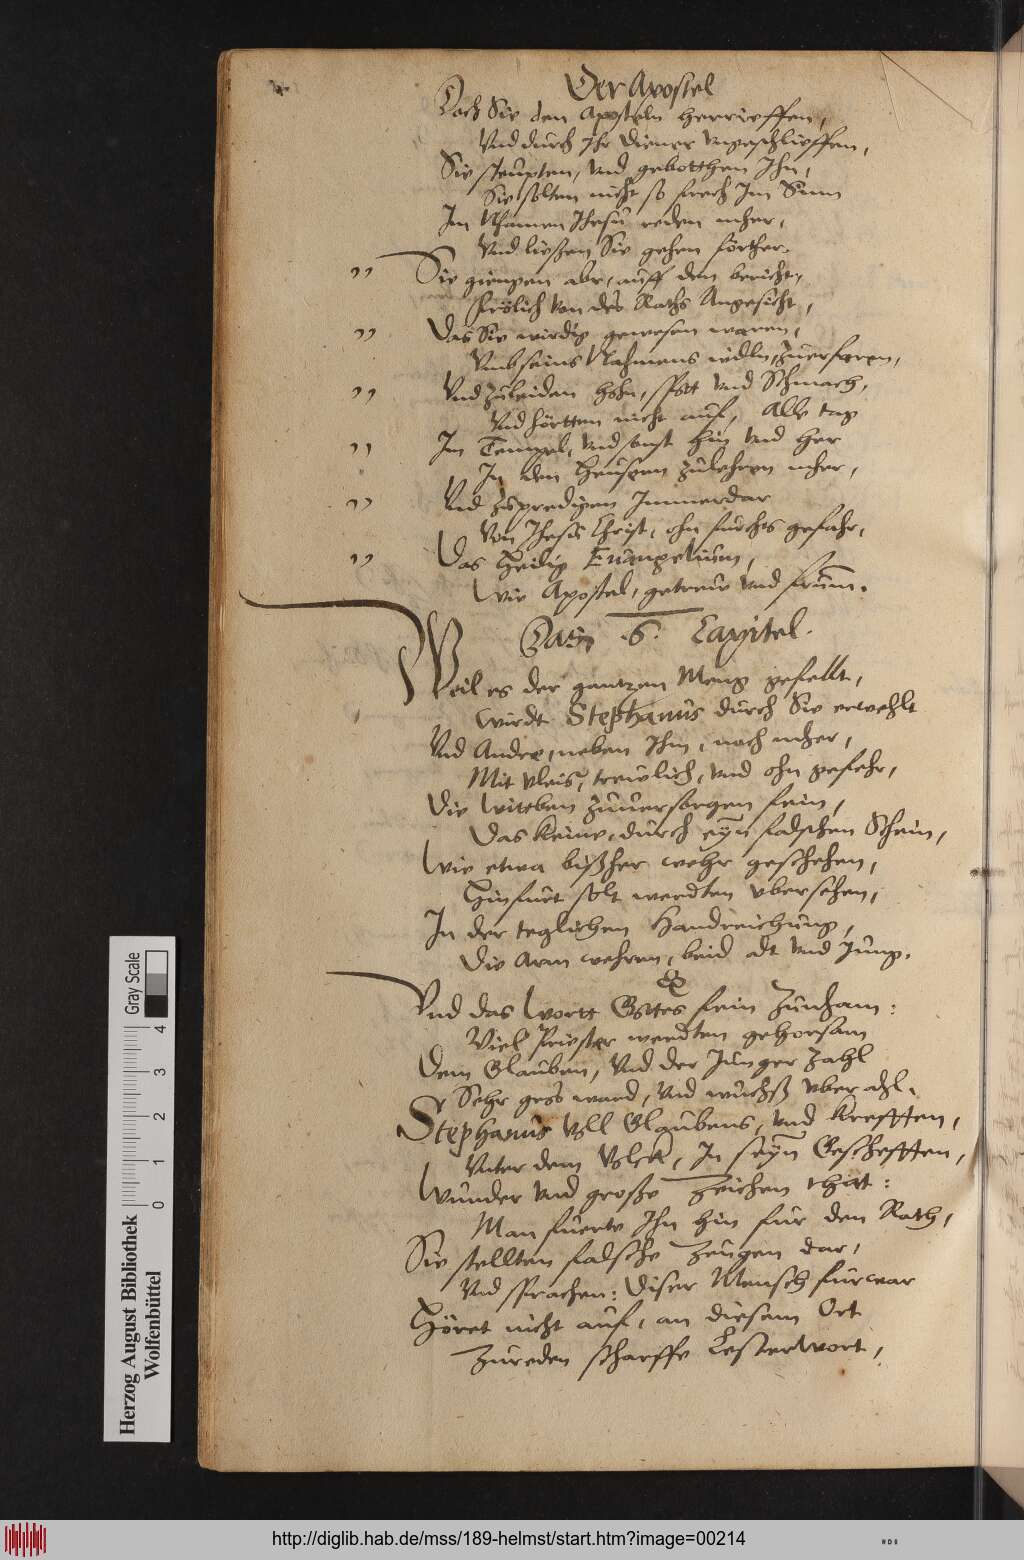 Der Apostel
Doch Sie den Aposteln herrieffen,
Vnd durch Ihr Diener
Sie steupten, vnd gebotthen Ihn,
Sie solten nicht so frech Im Sinn
Im Nhamen Jhesu reden mher,
Vnd liessen Sie gehenförther.
" Sie giengen abr, auff den bericht,
Frölich von des Raths Angesicht,
" Das Sie wirdig gewesen waren,
Vmb seins Nahmens willn, zuerfaren,
" Vnd zuleiden hohn, spott vnd Schmach,
Vnd hörtten nicht auf, Alle tag
" Im Tempel, vnd sonst hin vnd her
In den Heusern zulehren mher,
" Vnd zupredigen Immerdar
Von Jhesu Christ, ohn furchts gefahr,
" Das Heilig Euangelium,
Wie Apostel, getreuw vnd frumm.
Das 6. Capitel.
Weil es der gantzen Meng gefellt,
Wirdt Stephanus durch Sie erwehlt
Vnd Andre, neben Ihm, noch mher,
Mit vleis, treulich, vnd ohn gefehr,
Die Witwben zuuersorgen fein,
Das keine, durch eyn falschen Schein,
Wie etwa bissher wehr geschehen,
Hinfurt solt werdten vbersehen,
In der teglichen Handreichung,
Die Arm wehren, beid alt vnd Jung.
Vnd das Wortt Gottes fein zunham:
Viel Priester werdten gehorsam
Dem Glauben, Vnd der Junger zahl
Sehr gros ward, vnd wuchss vber all.
Stephanus voll Glaubens, vnd Krefften,
Vnter dem Volck, In seyn Geschefften,
Wunder vnd grosse Zeichen thatt:
Man fuerte Ihn hin fur den Rath,
Sie stellten falsche Zeugen dar,
Vnd sprachen: Diser Mensch furwar
Höret nicht auf, an diesem Ort
Zureden scharffe Lesterwort,
Herzog August Bibliothek
Wolfenbüttel
0 1 2 3 4
Gray Scale
http://diglib.hab.de/mss/189-helmst/start.htm?image=00214